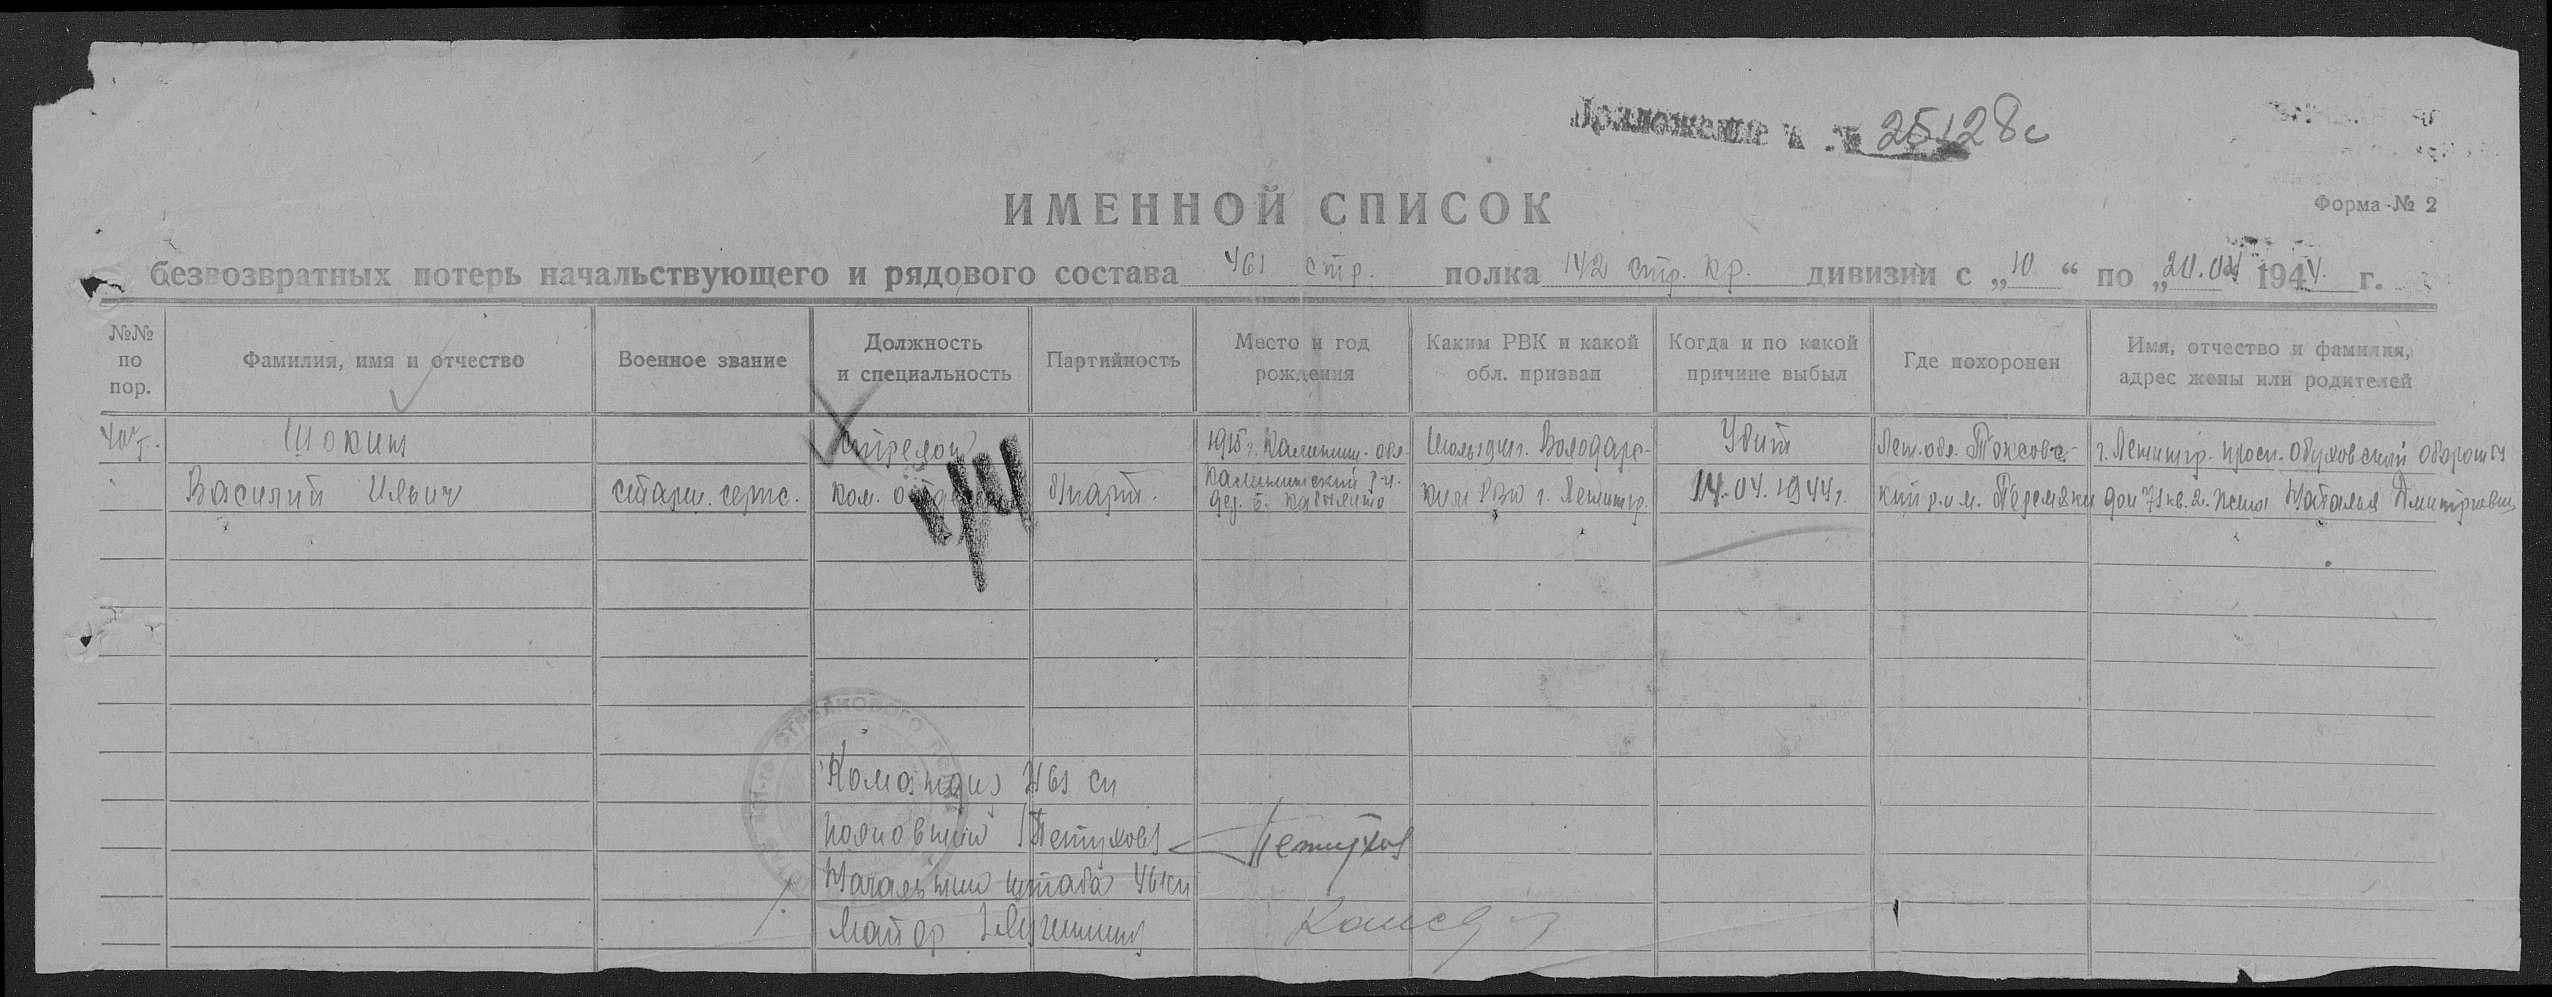 Приложение к № 25128с
ИМЕННОЙ СПИСОК
Форма № 2
безвозвратных потерь начальствующего и рядового состава 461 стр. полка 142 стр. кр. дивизии с „10“ по „20.04 1944 г.
№№ по пор.
Фамилия, имя и отчество
Военное звание
Должность и специальность
Партийность
Место и год рождения
Каким РВК и какой обл. призван
Когда и по какой причине выбыл
Где похоронен
Имя, отчество и фамилия, адрес жены или родителей
Шокин
Василий Ильич
старш. серж.
стрелок
ком.
б/парт.
1915 г. Калинин. обл.
Калининский р-н.
дер. Б.
Июль 1941 г. Володарс-
ким РВК г. Ленингр.
Убит
14.04.1944 г.
Лен. обл. Токсовс-
кий р-н. м. Перемяки
г. Ленингр. просп. Обуховский обороны
дом 71 кв. 2. жена Наталья Дмитриевна
Командир 461 сп
полковник /Петухов/ Петухов
Начальник штаба 461 сп
Майор